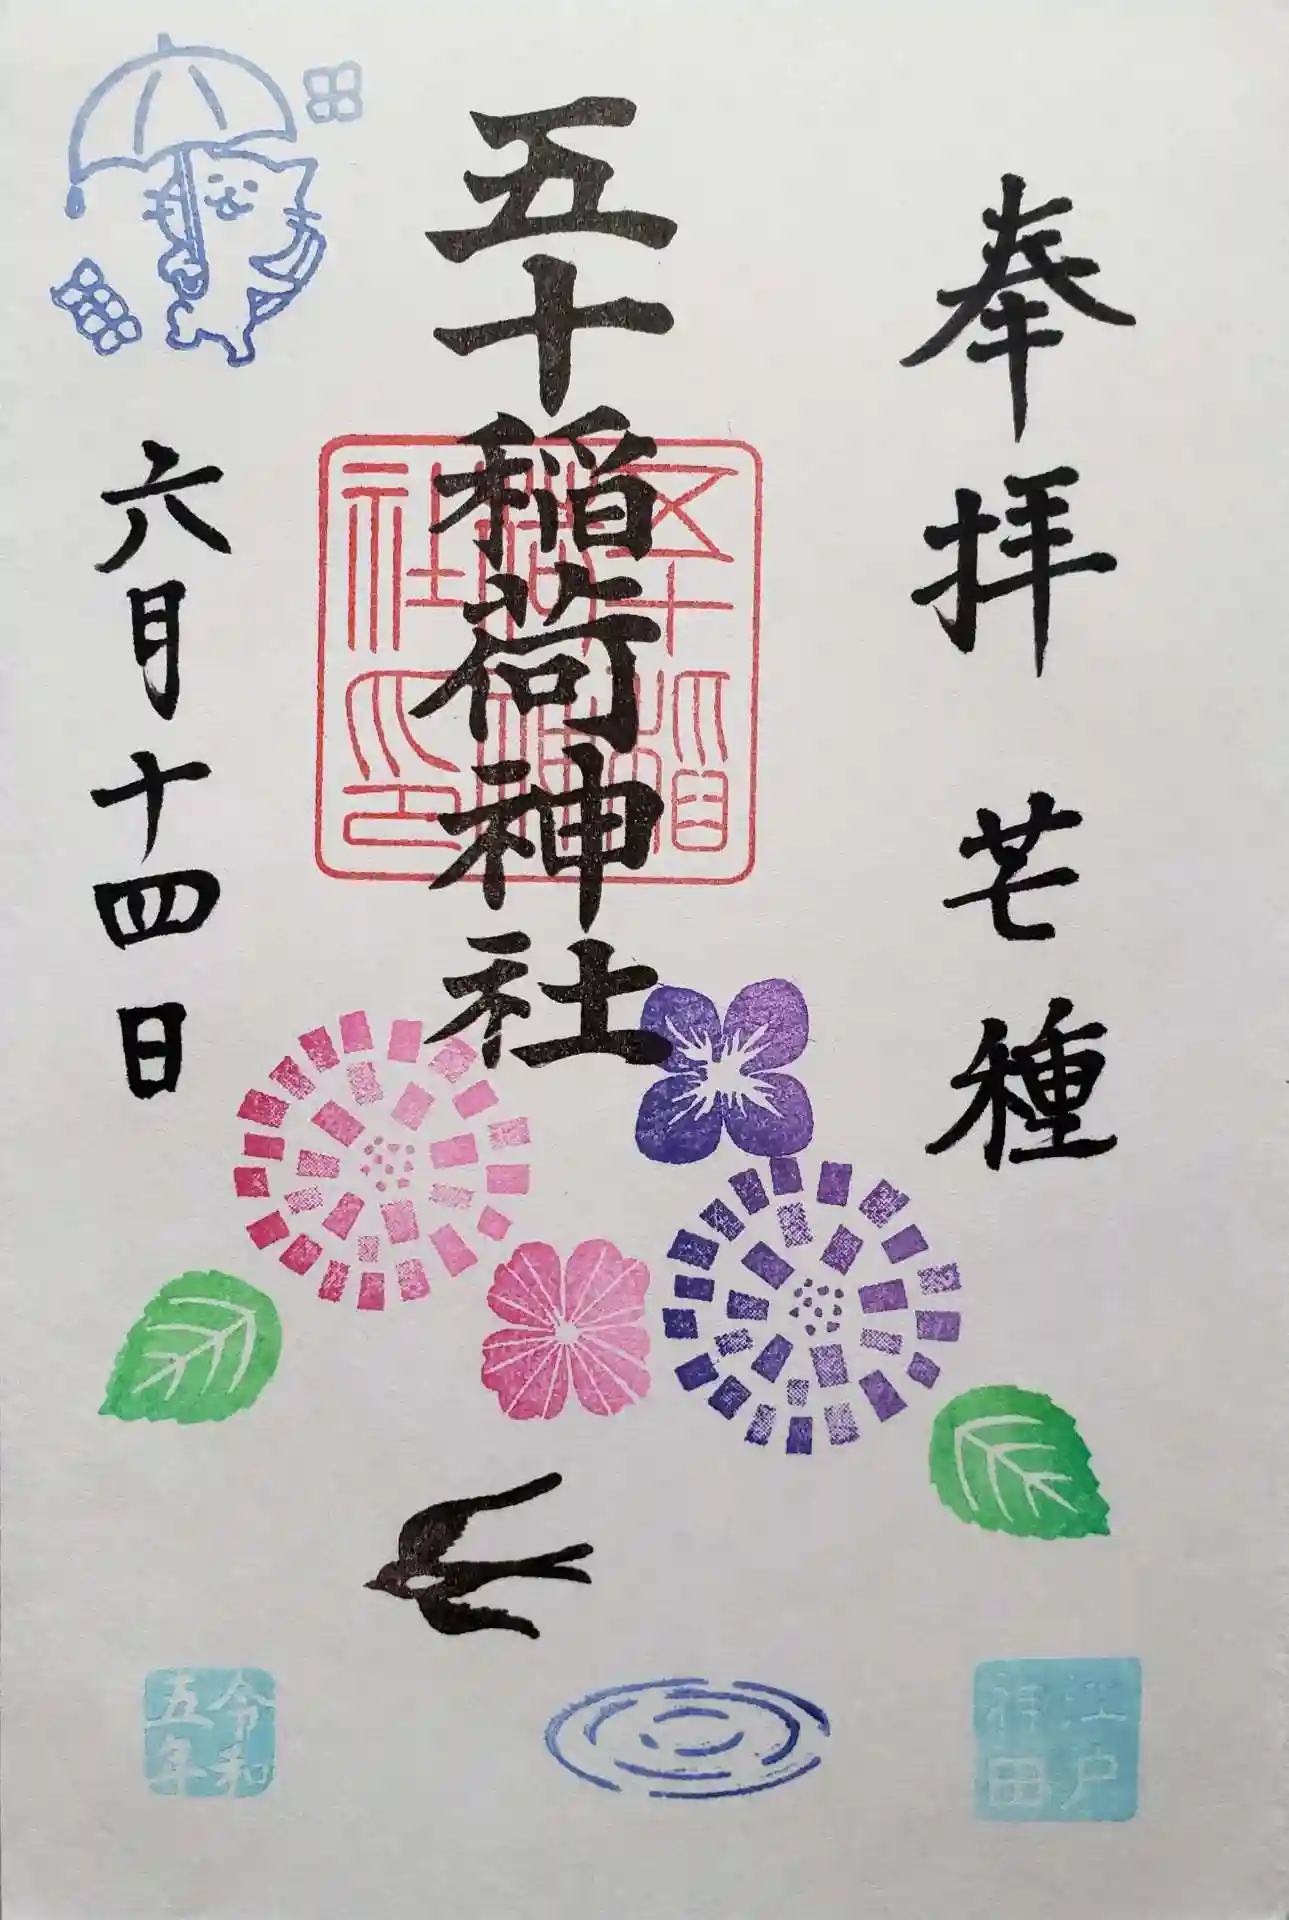 奉拝 芒種
五十稲荷神社
六月十四日
五十稲
荷神
社印
江戸
神田
令和
五年